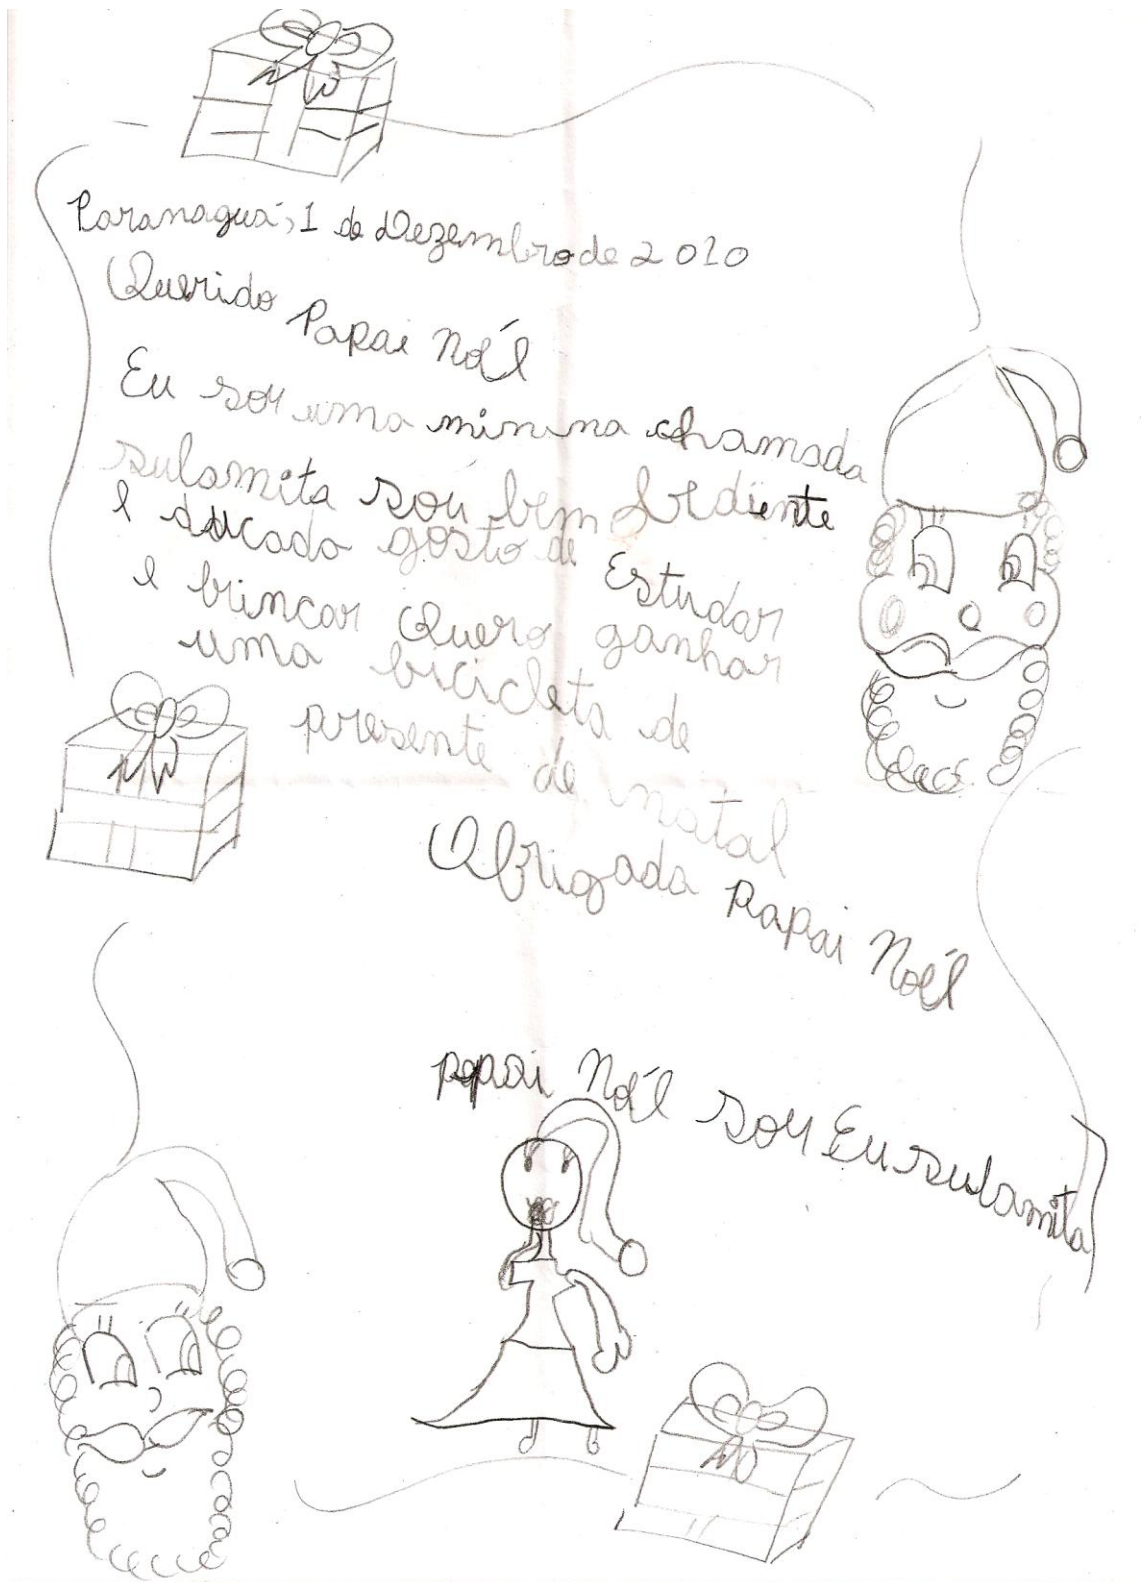 Paranaguá, 1 de Dezembro de 2010
Querido
Papai Noél
Eu sou uma minina chamada
sulamita sou bem obidiente
e ducada gosto de Estudar
e brincar Quero ganhar
uma bicicleta de
presente de natal
Obrigada Papai Noél
papai Noél sou Eu sulamita